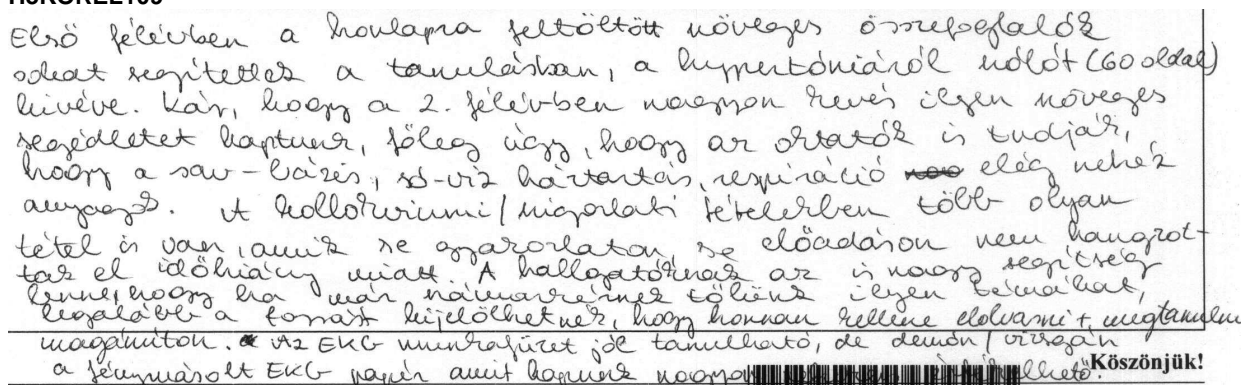 Első félévben a honlapra feltöltött szöveges összefoglalók
sokat segítettek a tanulásban, a hypertóniáról szólót (60 oldal)
kivéve. Kár, hogy a 2. félévben nagyon kevés ilyen szöveges
segédletet kaptunk, főleg úgy, hogy az oktatók is tudják,
hogy a sav-bázis, só-víz háztartás, respiráció elég nehéz
anyagok. A kollokviumi/szigorlati tételekben több olyan
tétel is van, amik se gyakorlaton, se előadáson nem hangzot-
tak el időhiány miatt. A hallgatóknak az is nagy segítség
lenne, hogy ha már számonkérnek tőlünk ilyen témákat,
legalább a forrást kijelölhetnék, hogy honnan kellene elolvasni + megtanulni
magánúton. Az EKG munkafüzet jól tanulható, de demón/vizsgán
a fénymásolt EKG papír amit kapunk nagyon Köszönjük!